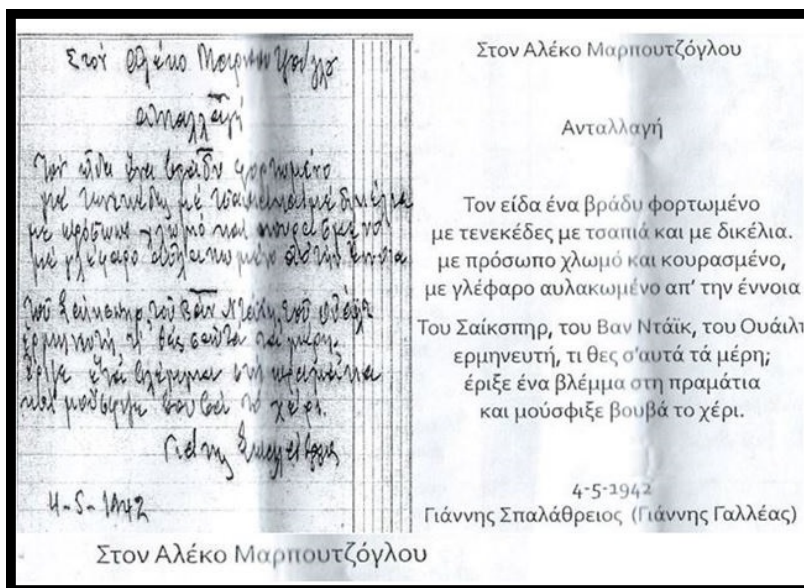 Στον Αλέκο Μαρπουτζόγλου
Ανταλλαγή
Τον είδα ένα βράδυ φορτωμένο
με τενεκέδες με τσαπιά και με δικέλια
με πρόσωπο χλωμό και κουρασμένο
με γλέφαρο αυλακωμένο από την έννοια
του Σαίκσπηρ του Βαν Ντάικ του Ουάιλτ
ερμηνευτή τι θες σαυτά τα μέρη.
έριξε ένα βλέμμα στη πραμάτια
και μούσφιξε βουβά το χέρι.
Γιάννης
4-5-1942
Στον Αλέκο Μαρπουτζόγλου
Ανταλλαγή
Τον είδα ένα βράδυ φορτωμένο
με τενεκέδες με τσαπιά και με δικέλια.
με πρόσωπο χλωμό και κουρασμένο,
με γλέφαρο αυλακωμένο απ' την έννοια
Του Σαίκσπηρ, του Βαν Ντάϊκ, του Ουάιλτ
ερμηνευτή, τι θες σ'αυτά τά μέρη;
έριξε ένα βλέμμα στη πραμάτια
και μούσφιξε βουβά το χέρι.
4-5-1942
Γιάννης Σπαλάθρειος (Γιάννης Γαλλέας)
Στον Αλέκο Μαρπουτζόγλου